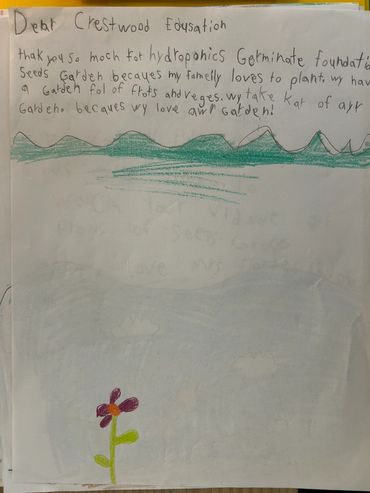 Dear Crestwood Edusation
thak you so moch for hydroponics Germinate foundati
Seeds Garden becaues my famelly loves to plant. wy hav
a Garden fol of frots and veges. wy take Kar of ayr
Garden. becaues wy love awr Garden!